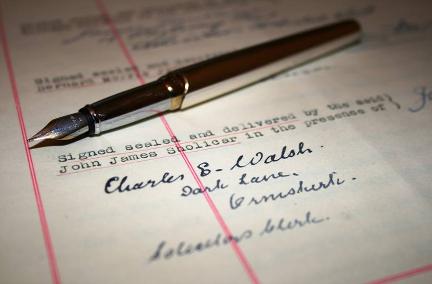 Signed sealed and
Signed sealed and delivered by the said)
John James Sholicar in the presence of )
Charles E. Walsh.
Dark Lane.
Ormskirk.
Solicitors Clerk.